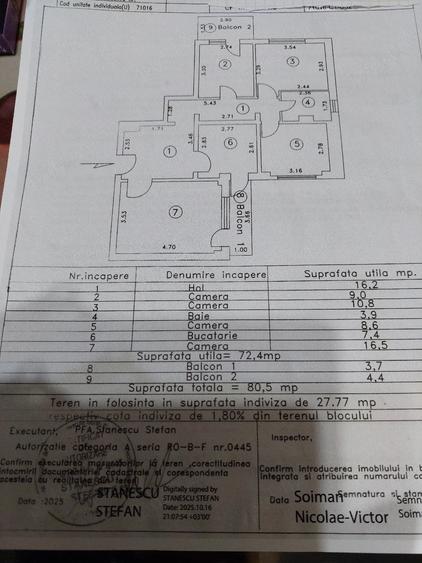 Cod unitate individuala(U) 71016
2.90
9 Balcon 2
2.74
3.54
3.30
2
3.29
3
2.93
2.44
2.36
5.43
4
1.73
1.28
1
2.71
1.71
2.77
3.46
2.83
6
2.81
5
2.78
2.53
1
3.16
8
Balcon 1
3.66
3.53
7
4.70
1.00
Nr.incapere Denumire incapere Suprafata utila mp.
1 Hol 16,2
2 Camera 9,0
3 Camera 10,8
4 Baie 3,9
5 Camera 8,6
6 Bucatarie 7,4
7 Camera 16,5
Suprafata utila= 72,4mp
8 Balcon 1 3,7
9 Balcon 2 4,4
Suprafata totala = 80,5 mp
Teren in folosinta in suprafata indiviza de 27.77 mp
respectiv cota indiviza de 1,80% din terenul blocului
Executant, PFA Stanescu Stefan
Autorizatie categoria A seria RO-B-F nr.0445
Confirm executarea masuratorilor la teren ,corectitudinea
intocmirii documentatiei cadastrale si corespondenta
acesteia cu realitatea din teren
STANESCU
STEFAN
Digitally signed by
STANESCU STEFAN
Date: 2025.10.16
21:07:54 +03'00'
Data :2025
Inspector,
Confirm introducerea imobilului in b
integrata si atribuirea numarului ca
Data
Semnatura si stam
Soiman
Nicolae-Victor
Semn
Soima